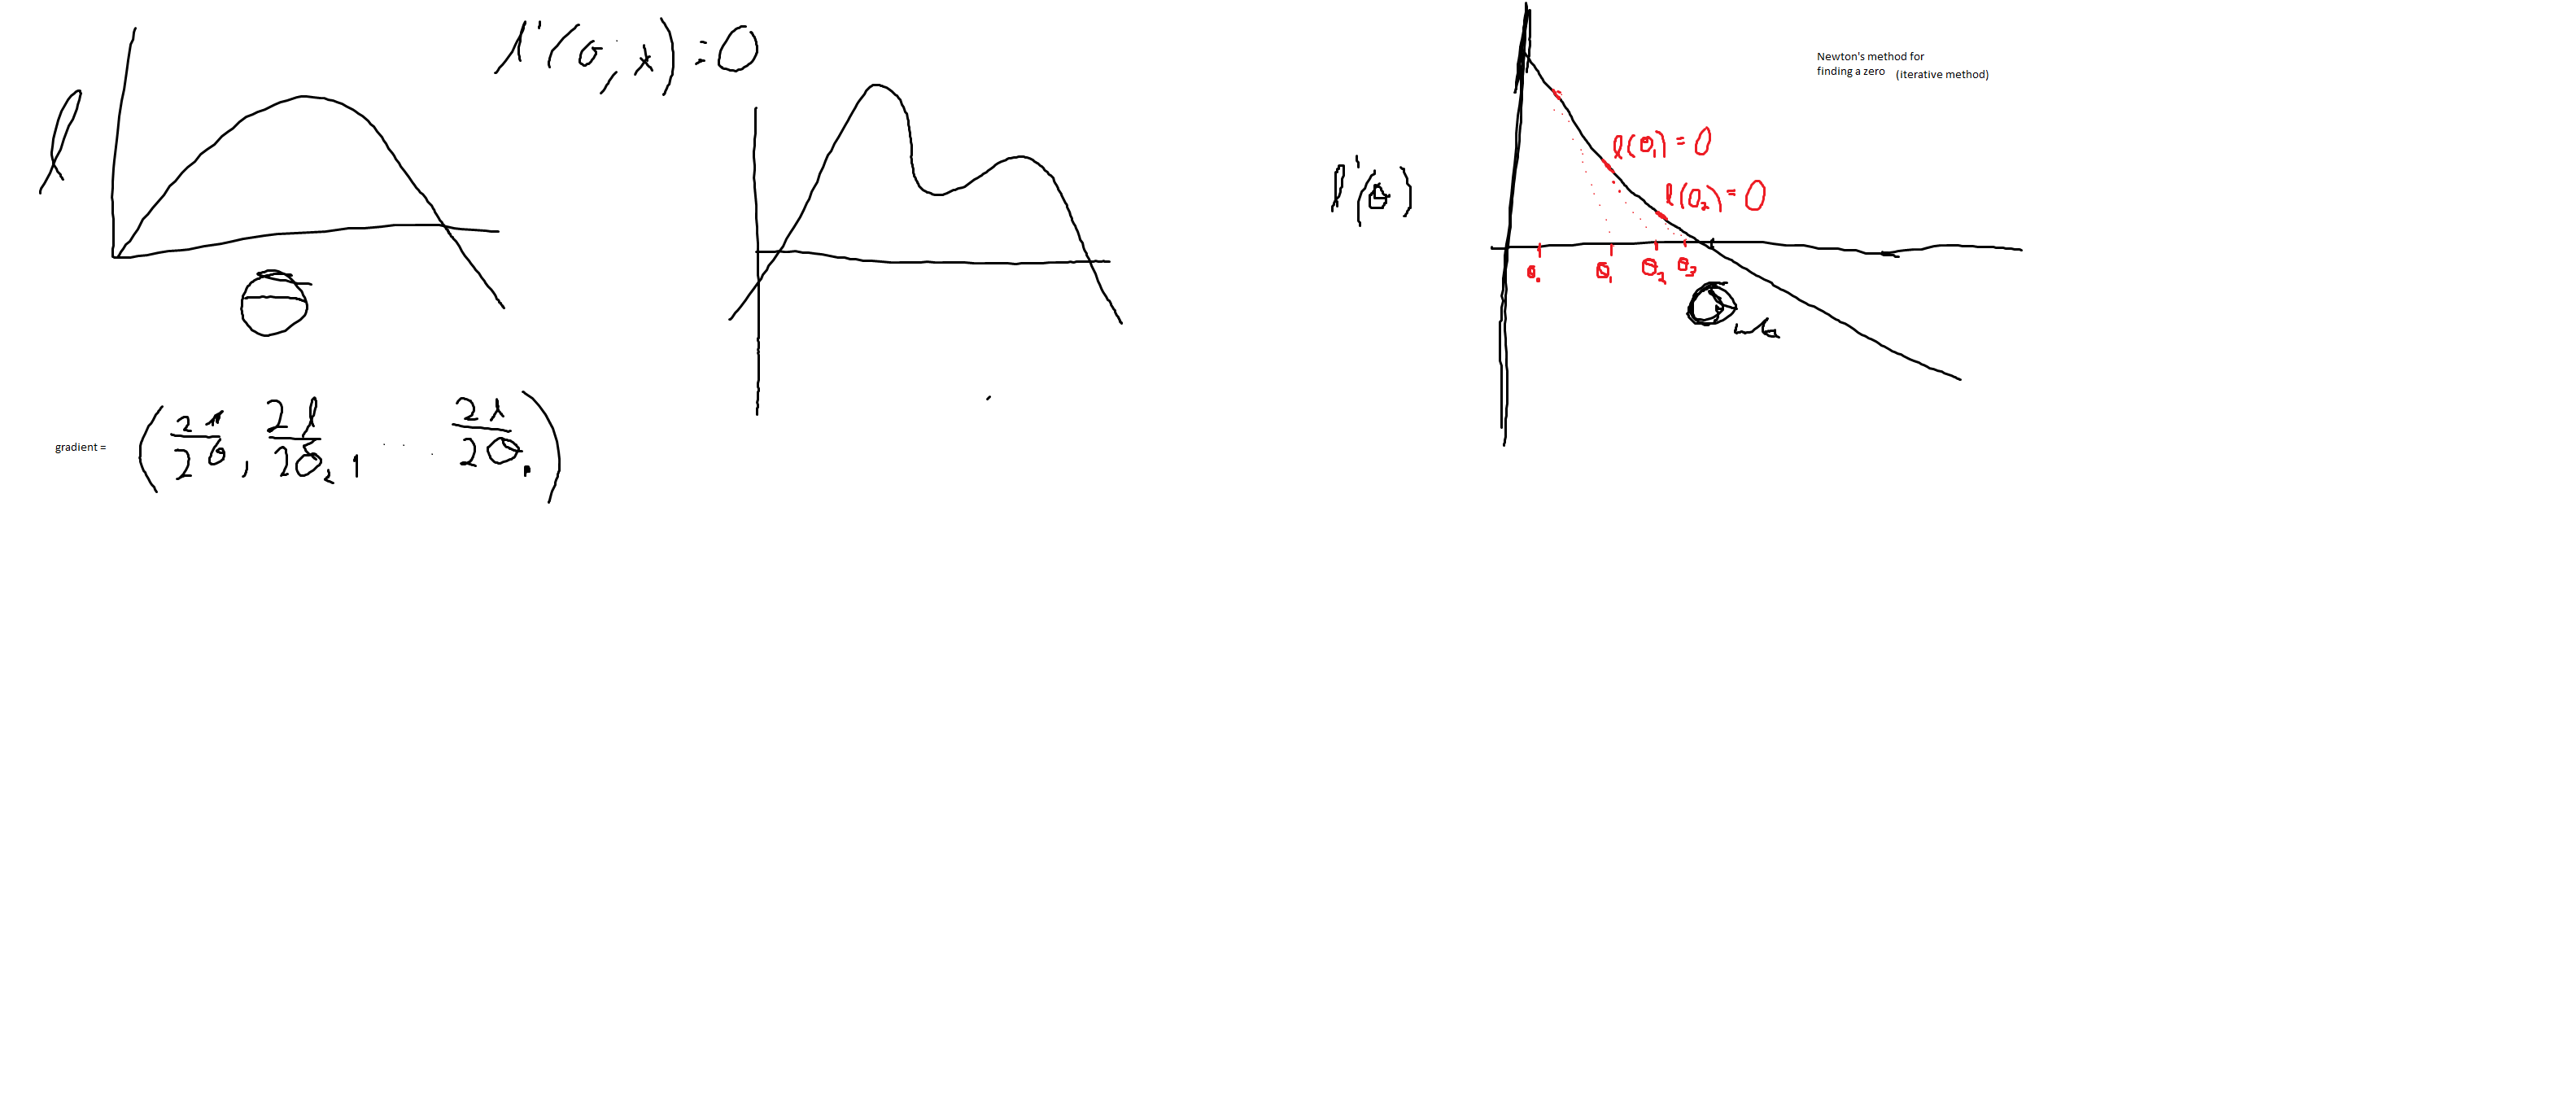 l
l'(θ; x) = 0
θ
gradient = (∂l/∂θ, ∂l/∂θ₂, ... ∂l/∂θₚ)
Newton's method for
finding a zero (iterative method)
l'(θ)
l(θ₁) = 0
l(θ₂) = 0
θ₀ θ₁ θ₂ θ₃